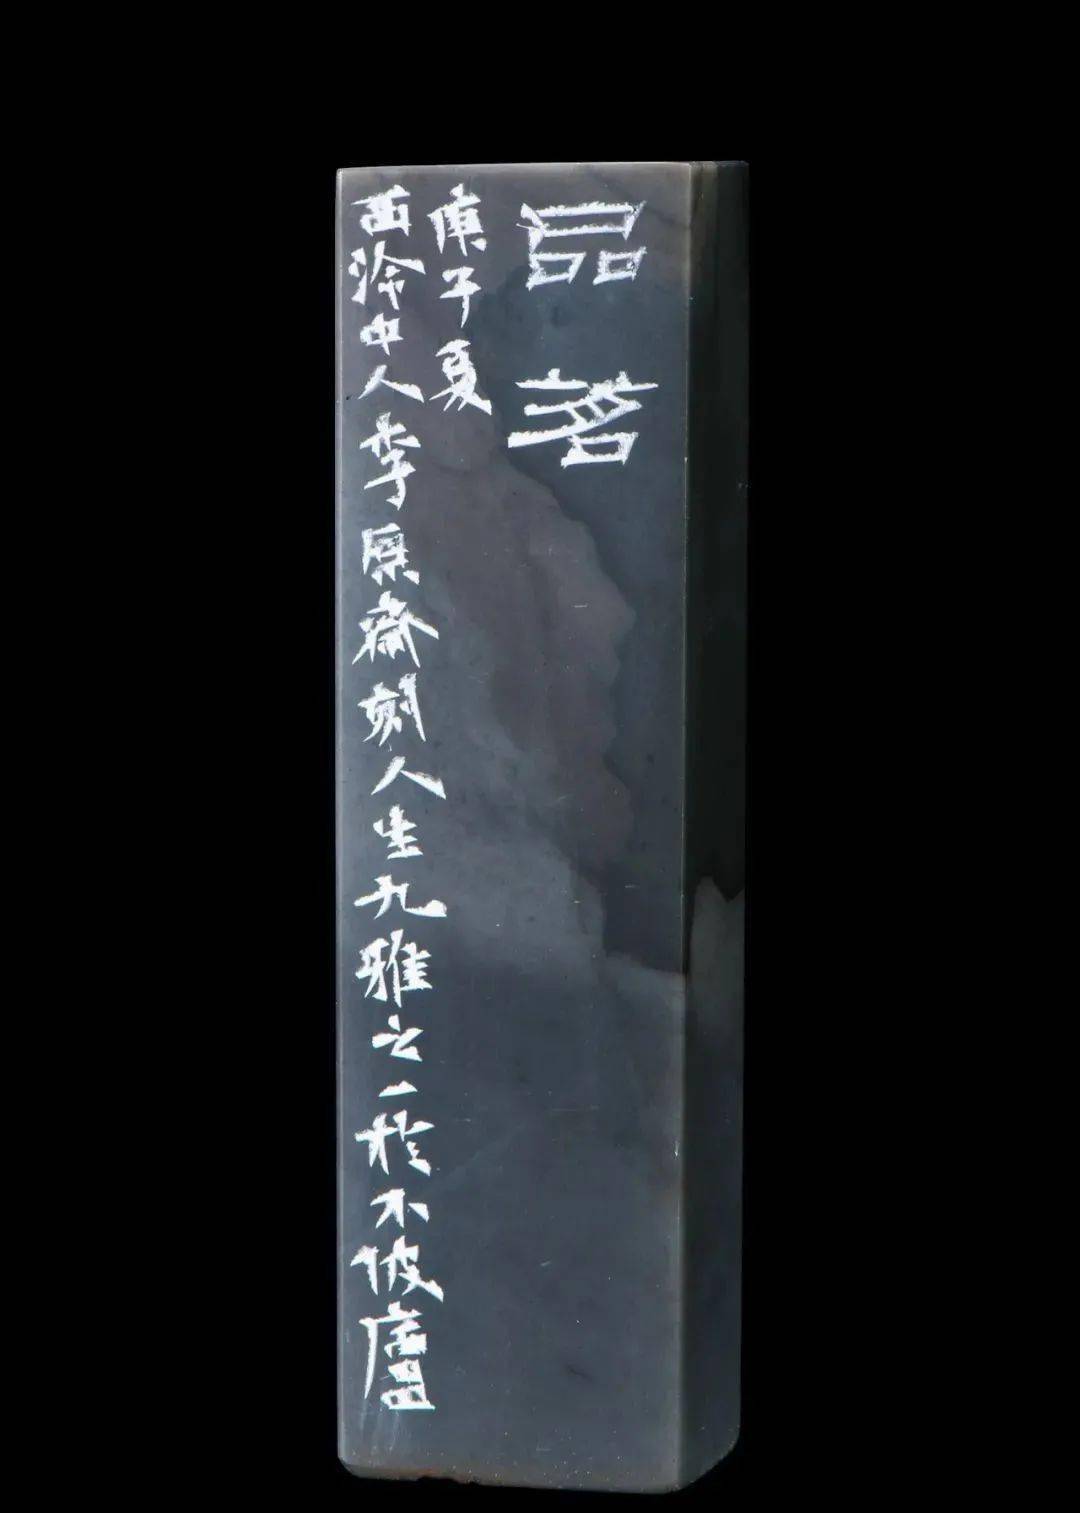 品茗
庚子夏
西泠中人李原斋刻人生九雅之一於不彼廬